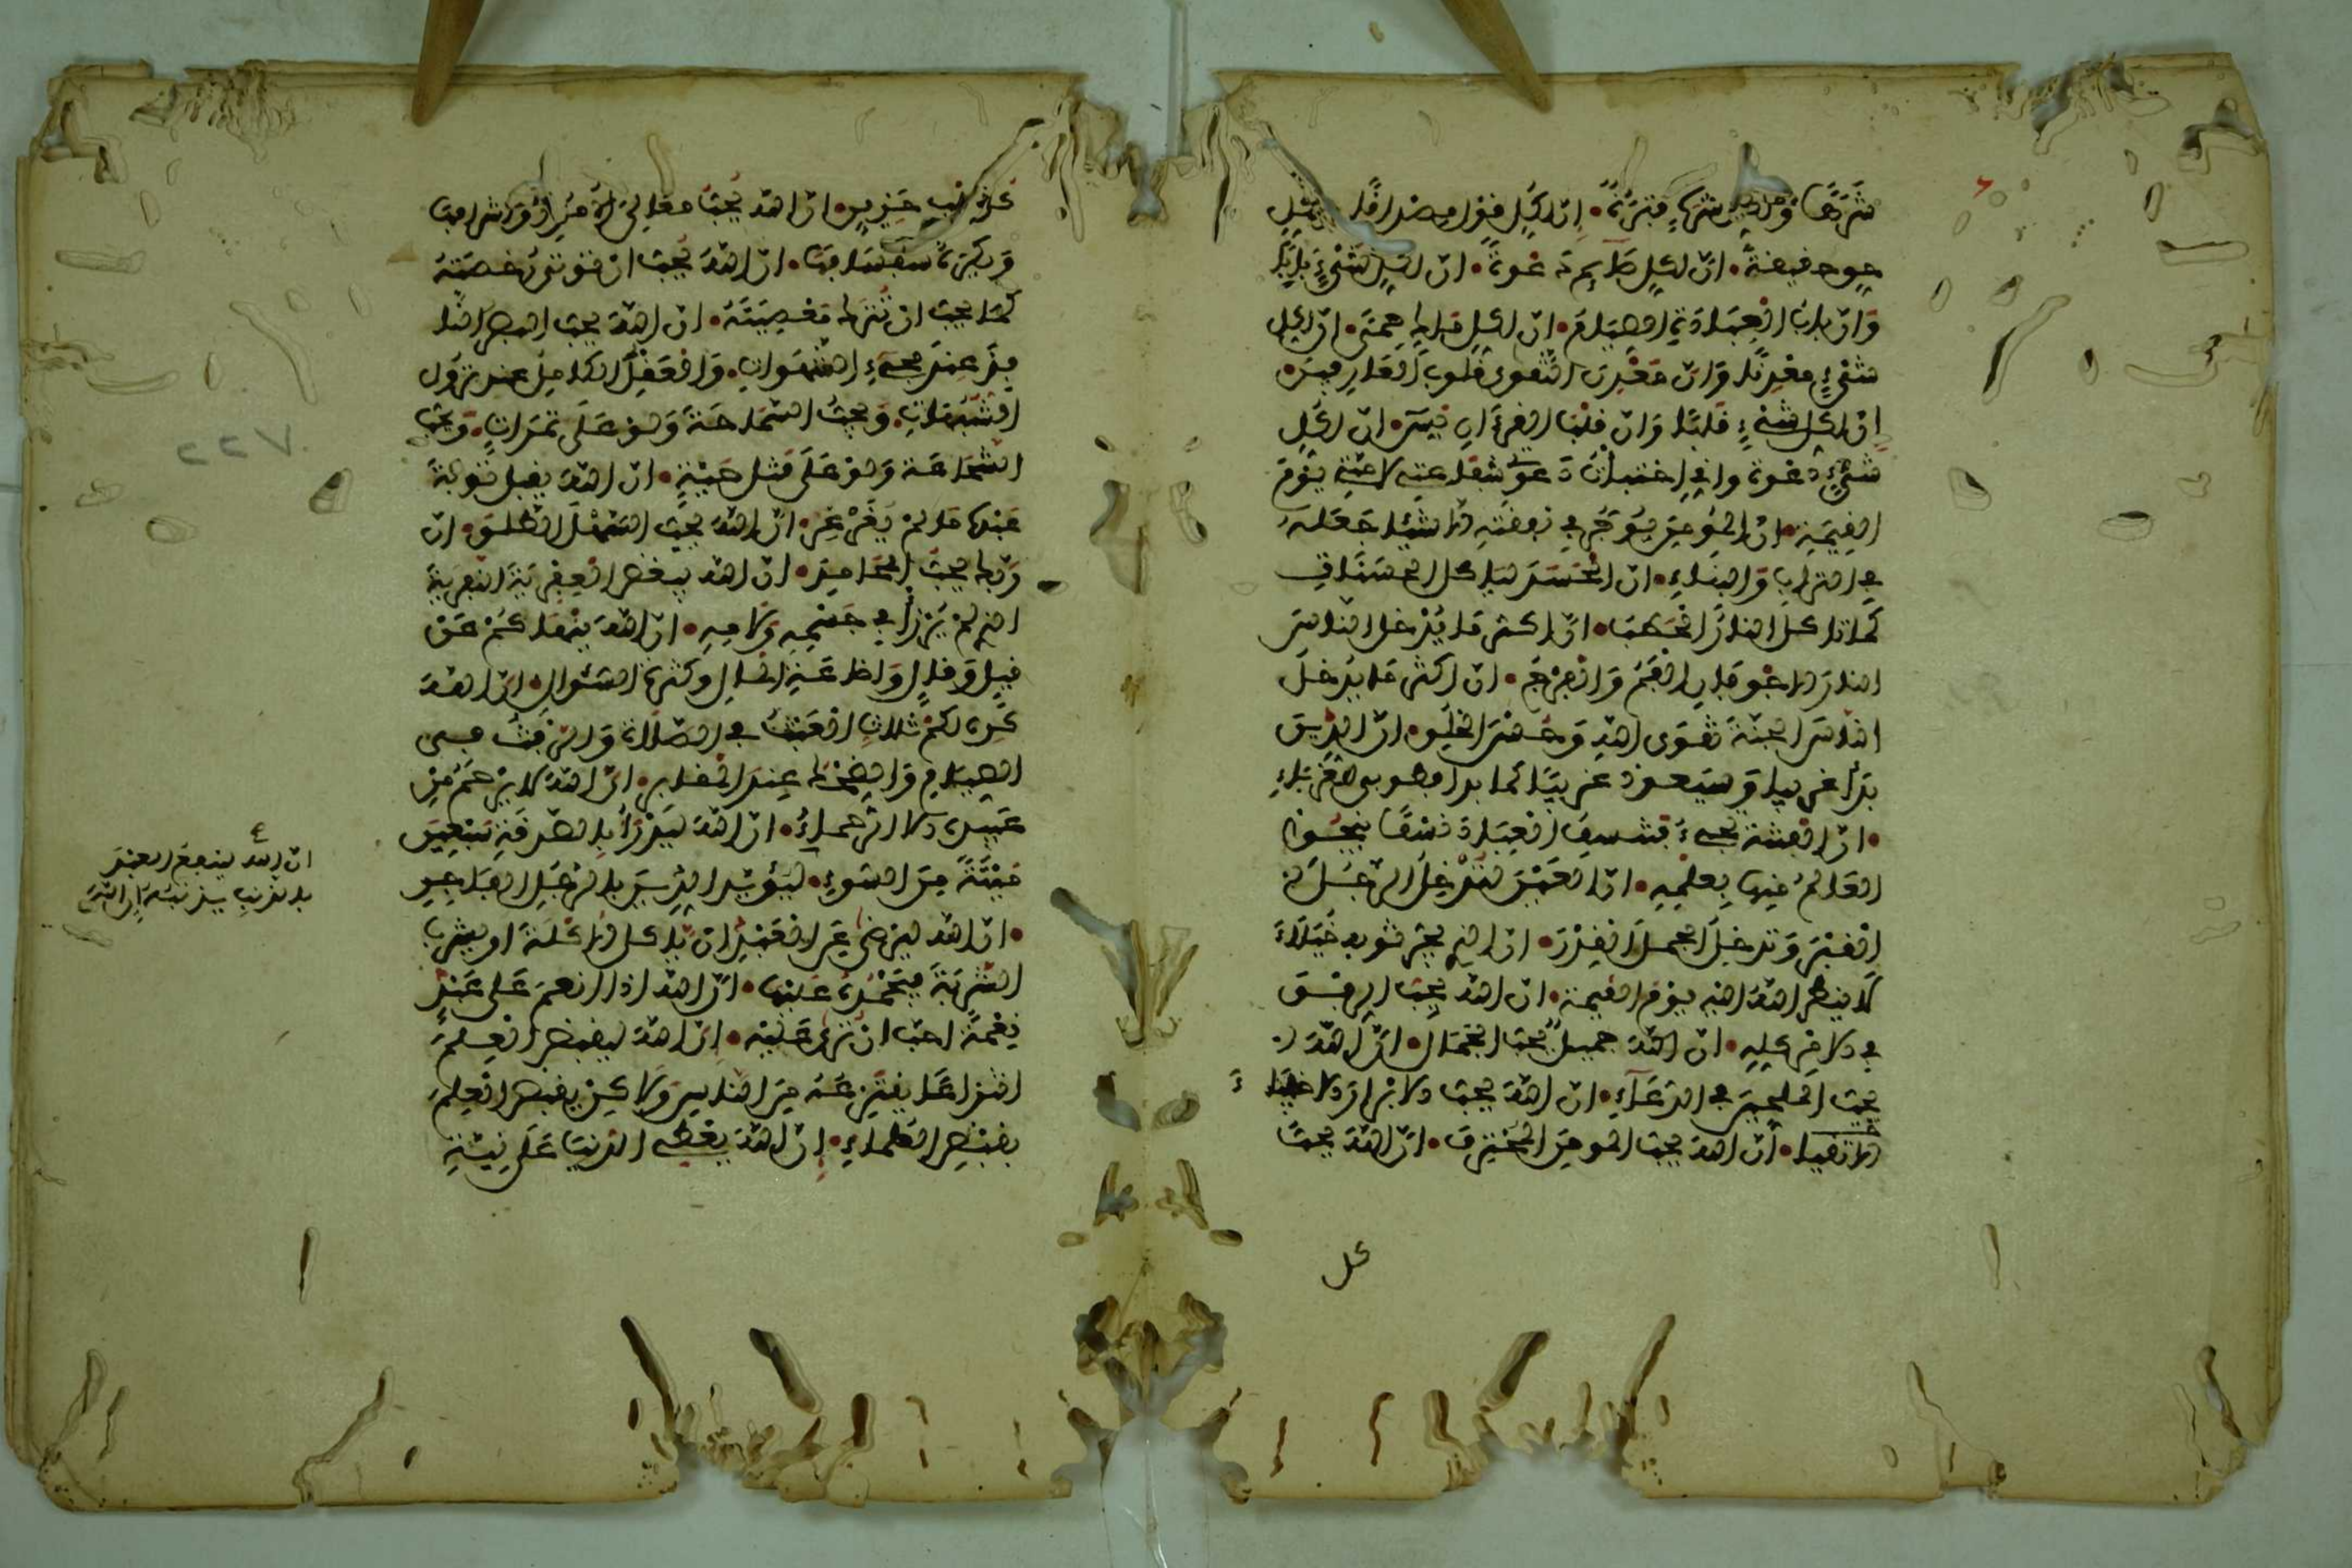 شرها ولكل شرة فترة • ان لكل قول مصداقا ولكل
حق حقيقة • ان لكل صايم دعوة • ان لكل شيء بابا
وان باب العبادة الصيام • ان لكل ملك حمى • ان لكل
شيء معدنا وان معدن التقوى قلوب العارفين •
ان لكل شيء قلبا وان قلب القرءان يس • ان لكل
نبي دعوة واني اختبأت دعوتي شفاعتي لامتي يوم
القيمة • ان المومن يوجر في نفقته الا شيئا جعله
في التراب والبناء • ان الحسد ياكل الحسنات
كما تاكل النار الحطب • ان اكثر ما يدخل الناس
النار الاجوفان الفم والفرج • ان اكثر ما يدخل
الناس الجنة تقوى الله وحسن الخلق • ان الدين
بدا غريبا وسيعود غريبا كما بدا فطوبى للغرباء
• ان الفتنة تجيء فتنسف العباد نسفا ينجوا
العالم منها بعلمه • ان العين لتدخل الرجل
القبر وتدخل الجمل القدر • ان الذي يجر ثوبه خيلاء
لا ينظر الله اليه يوم القيمة • ان الله يحب الرفق
في الامر كله • ان الله جميل يحب الجمال • ان الله
يحب الملحين في الدعاء • ان الله يحب الابرار الاخفياء
الاتقيا • ان الله يحب المومن المحترف • ان الله يحب
كل
كل قلب حزين • ان الله يحب معالي الامور واشرافها
ويكره سفسافها • ان الله يحب ان توتى رخصته
كما يحب ان تترك معصيته • ان الله يحب البصر النا
فذ عند مجيء الشهوات • والعقل الكامل عند نزول
الشبهات • ويحب السماحة ولو على تمرات • ويحب
الشجاعة ولو على قتل حية • ان الله يقبل توبة
عبده ما لم يغرغر • ان الله يحب السهل الطلق • ان
ربك يحب المحامد • ان الله يبغض العفرية النفرية
الذي لم يرزا في جسمه ولا ماله • ان الله ينهاكم عن
قيل وقال واضاعة المال وكثرة السؤال • ان الله
كره لكم ثلاث العبث في الصلاة والرفث في
الصيام والضحك عند المقابر • ان الله لا يرحم من
عبيده الا الرحماء • ان الله ليدرأ بالصدقة سبعين
ميتة من السوء • ليؤيد الدين بالرجل الفاجر
• ان الله ليرضى عن العبد ان ياكل الاكلة او يشرب
الشربة فيحمده عليها • ان الله اذا انعم على عبد
نعمة احب ان ترى عليه • ان الله ليقبض العلم
انتزاعا ينتزعه من الناس ولاكن يقبض العلم
بقبض العلماء • ان الله يعطي الدنيا على نية
ان الله ينفع العبد
بالذنب يذنبه
٧٢٢